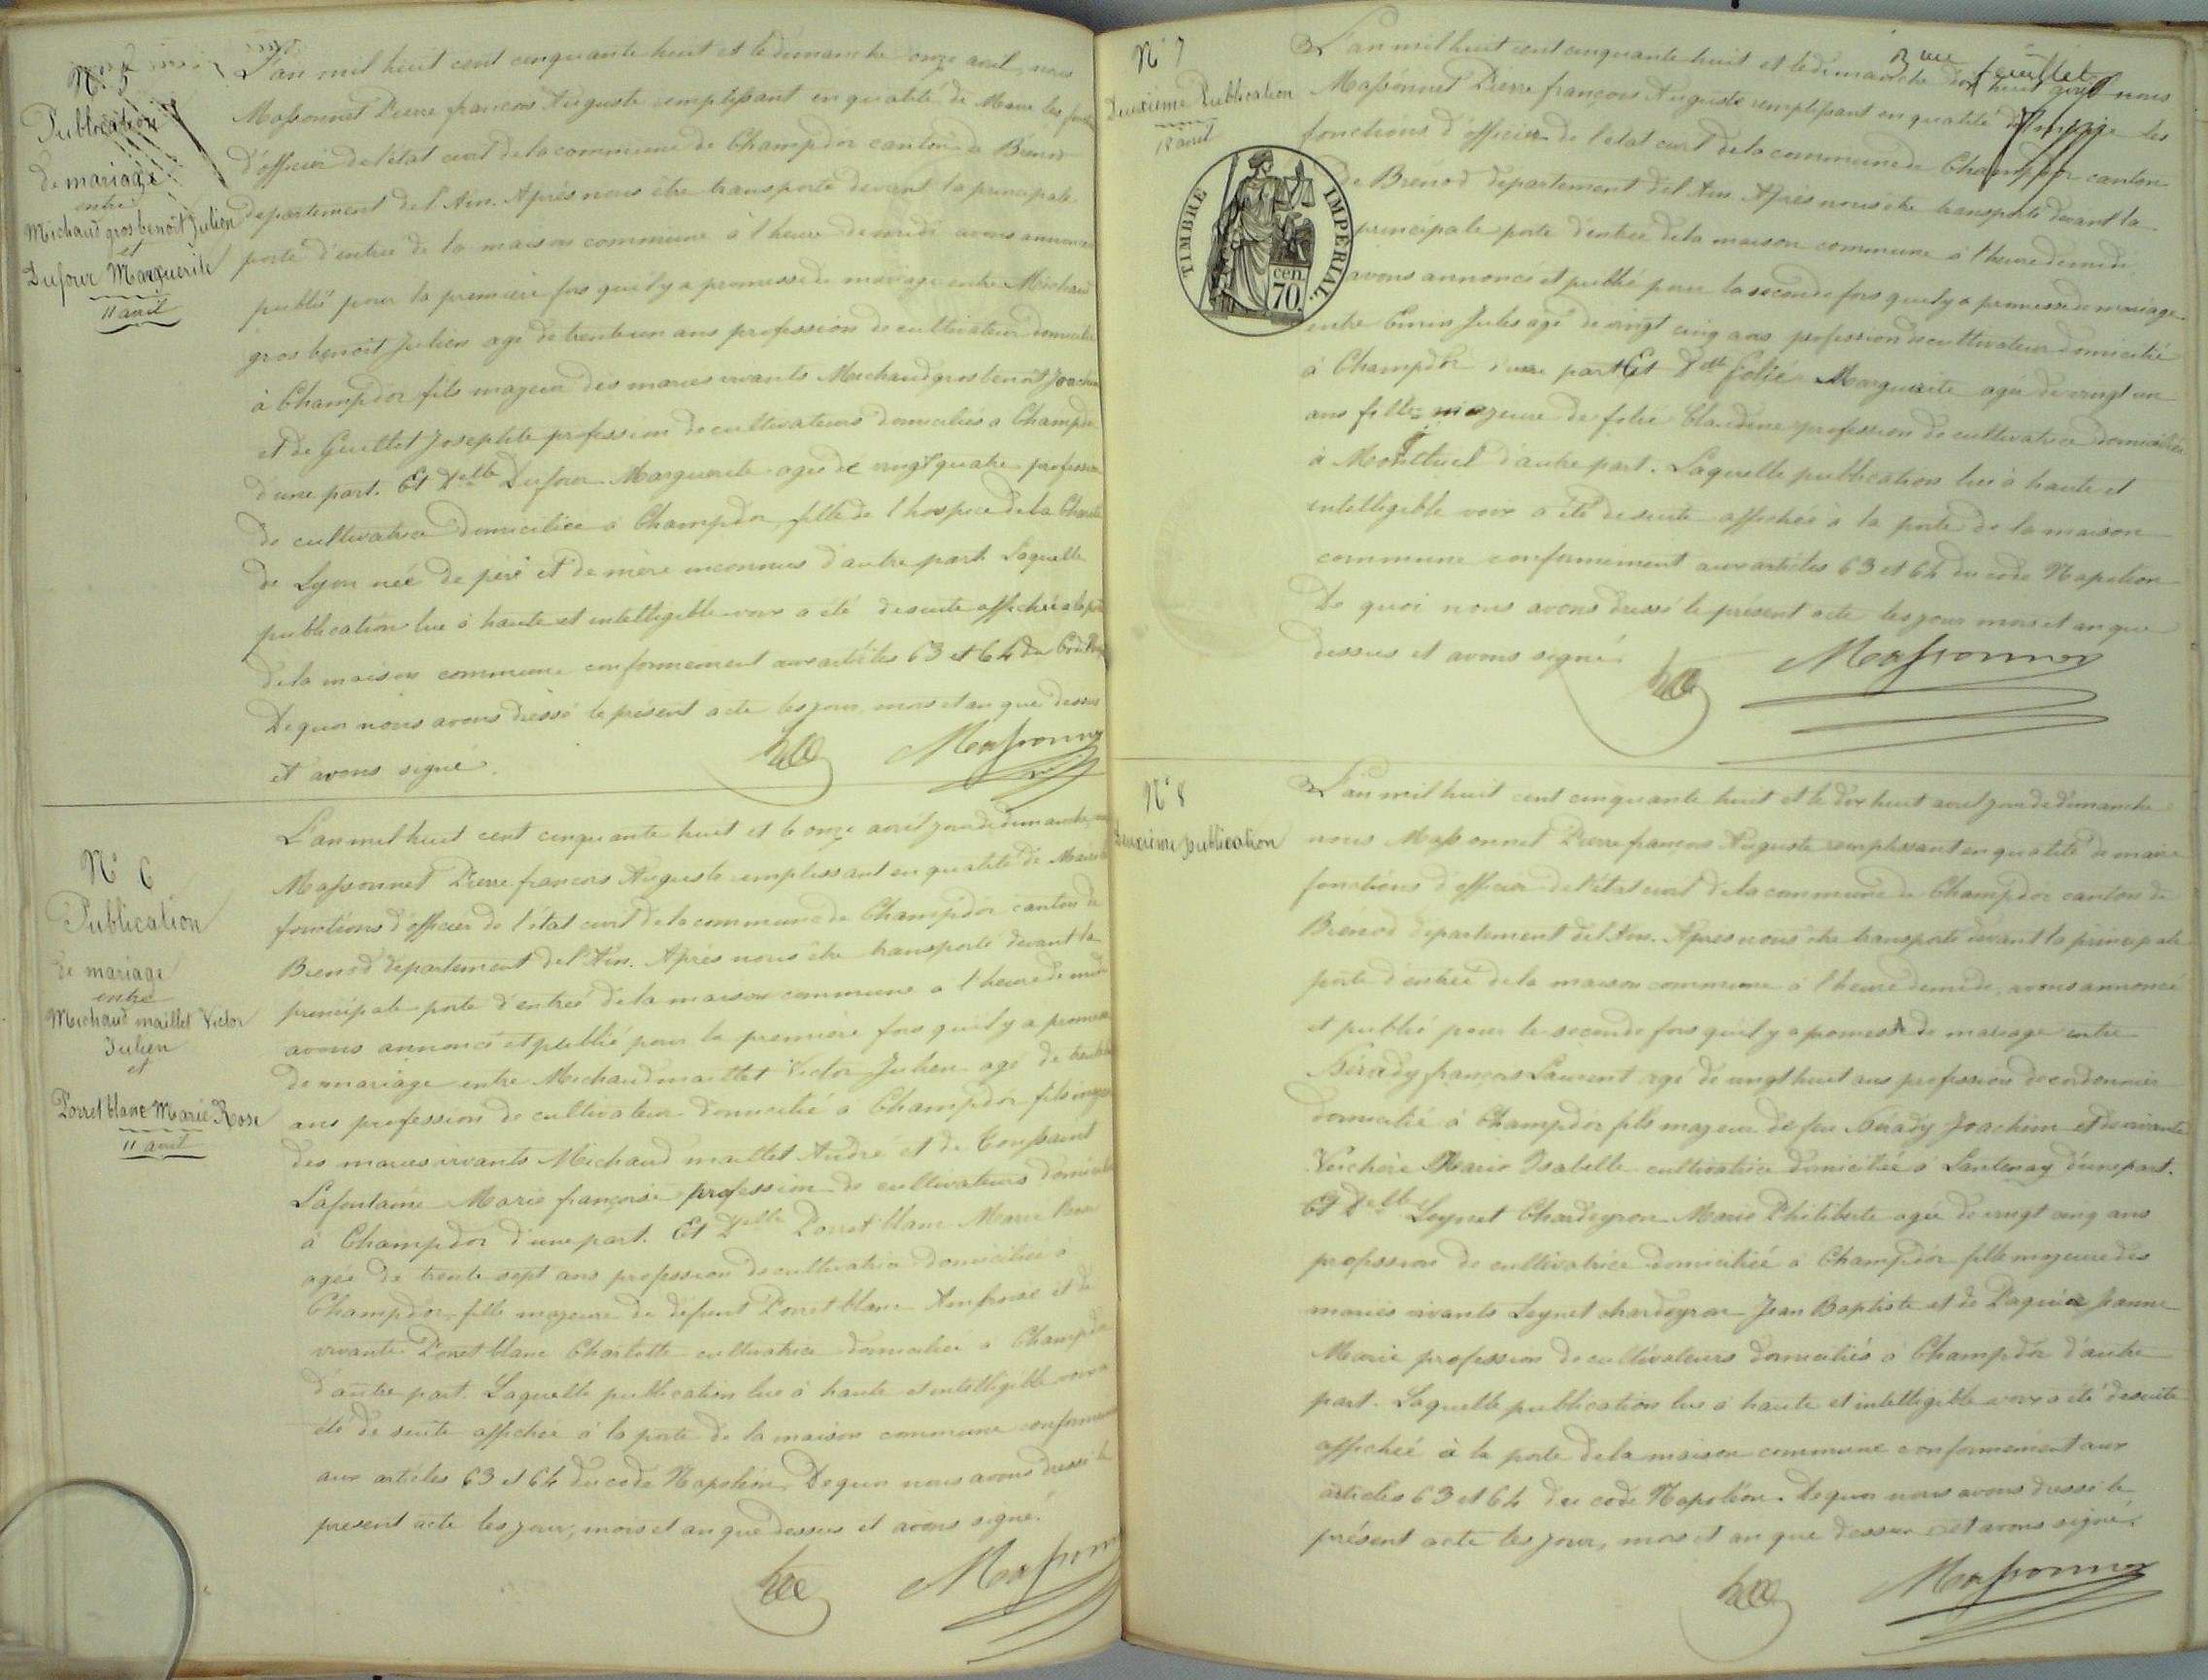 N° 5
Publication
de mariage
entre
Michaud gros benoit Julien
et
Dufour Marguerite
11 avril
L'an mil huit cent cinquante huit et le dimanche onze avril, nous
Massonnet Pierre françois Auguste remplissant en qualité de Maire les
d'officier de l'état civil de la commune de Champdor canton de Brénod
département de l'Ain. Après nous être transporté devant la principale
porte d'entrée de la maison commune à l'heure de midi avons annoncé
publié pour la première fois qu'il y a promesse de mariage entre Michaud
gros benoit Julien agé de trente un ans profession de cultivateur domicilié
à Champdor fils majeur des mariés vivants Michaud gros benoit Joachim
et de Guillet Josephte profession de cultivateurs domiciliés à Champdor
d'une part. Et Delle Dufour Marguerite agée de vingt quatre profession
de cultivatrice domiciliée à Champdor, fille de l'hospice de la Charité
de Lyon née de père et de mère inconnus d'autre part. Laquelle
publication lue à haute et intelligible voix a été de suite affichée à la
de la maison commune conformément aux articles 63 et 64 du Code
De quoi nous avons dressé le présent acte les jour, mois et an que dessus
et avons signé.
Massonnet
N° 6
Publication
de mariage
entre
Michaud maillet Victor
Julien
et
Porret blanc Marie Rose
11 avril
L'an mil huit cent cinquante huit et le onze avril jour de dimanche, nous
Massonnet Pierre françois Auguste remplissant en qualité de Maire
fonctions d'officier de l'état civil de la commune de Champdor canton de
Brénod département de l'Ain. Après nous être transporté devant la
principale porte d'entrée de la maison commune à l'heure de midi
avons annoncé et publié pour la première fois qu'il y a promesse
de mariage entre Michaud maillet Victor Julien agé de
ans profession de cultivateur domicilié à Champdor fils majeur
des mariés vivants Michaud maillet André et de Toussaint
Lafontaine Marie françoise profession de cultivateurs domiciliés
à Champdor d'une part. Et Delle Porret blanc Marie Rose
agée de trente sept ans profession de cultivatrice domiciliée à
Champdor, fille majeure de défunt Porret blanc Ambroise et de
vivante Porret blanc Charlotte cultivatrice domiciliée à Champdor
d'autre part. Laquelle publication lue à haute et intelligible voix a
été de suite affichée à la porte de la maison commune conformément
aux articles 63 et 64 du code Napoléon. De quoi nous avons dressé le
présent acte les jour, mois et an que dessus et avons signé.
Massonnet
3me feuillet
N° 7
Deuxième Publication
18 avril
TIMBRE IMPERIAL.
70 cen.
L'an mil huit cent cinquante huit et le dimanche dix huit avril nous
Massonnet Pierre françois Auguste remplissant en qualité de maire les
fonctions d'officier de l'état civil de la commune de Champdor canton
de Brénod département de l'Ain. Après nous être transporté devant la
principale porte d'entrée de la maison commune à l'heure de midi,
avons annoncé et publié pour la seconde fois qu'il y a promesse de mariage
entre Jules agé de vingt cinq ans profession de cultivateur domicilié
à Champdor d'une part Et Delle folié Marguerite agée de vingt un
ans fille majeure de folié Claudine profession de cultivatrice domiciliée
à Montluel d'autre part. Laquelle publication lue à haute et
intelligible voix a été de suite affichée à la porte de la maison
commune conformément aux articles 63 et 64 du code Napoléon
De quoi nous avons dressé le présent acte les jour mois et an que
dessus et avons signé.
Massonnet
N° 8
Deuxième publication
L'an mil huit cent cinquante huit et le dix huit avril jour de dimanche
nous Massonnet Pierre françois Auguste remplissant en qualité de maire
fonctions d'officier de l'état civil de la commune de Champdor canton de
Brénod département de l'Ain. Après nous être transporté devant la principale
porte d'entrée de la maison commune à l'heure de midi, avons annoncé
et publié pour la seconde fois qu'il y a promesse de mariage entre
françois Laurent agé de vingt huit ans profession de cordonnier
domicilié à Champdor fils majeur de feu Joachim et de vivante
Verchère Marie Isabelle cultivatrice domiciliée à Lantenay d'une part.
Et Delle Leynet Chardeyron Marie Philiberte agée de vingt cinq ans
profession de cultivatrice domiciliée à Champdor fille majeure des
mariés vivants Leynet chardeyron Jean Baptiste et de Paquier Jeanne
Marie profession de cultivateurs domiciliés à Champdor d'autre
part. Laquelle publication lue à haute et intelligible voix a été de suite
affichée à la porte de la maison commune conformément aux
articles 63 et 64 du code Napoléon. De quoi nous avons dressé le
présent acte les jour, mois et an que dessus et avons signé.
Massonnet